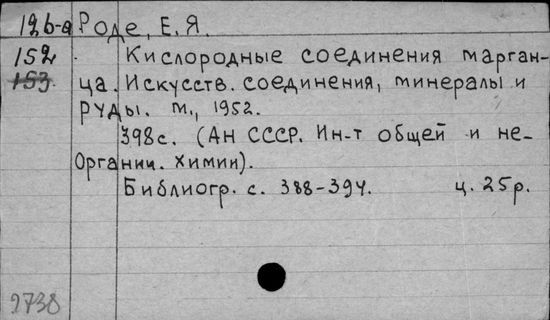 126-а Роде, Е. Я.
152 Кислородные соединения марган-
153 ца. Искусств. соединения, минералы и
руды. М., 1952.
398с. (АН СССР. Ин-т общей и не-
Органич. химии).
Библиогр. с. 388-394. ц. 25р.
2738